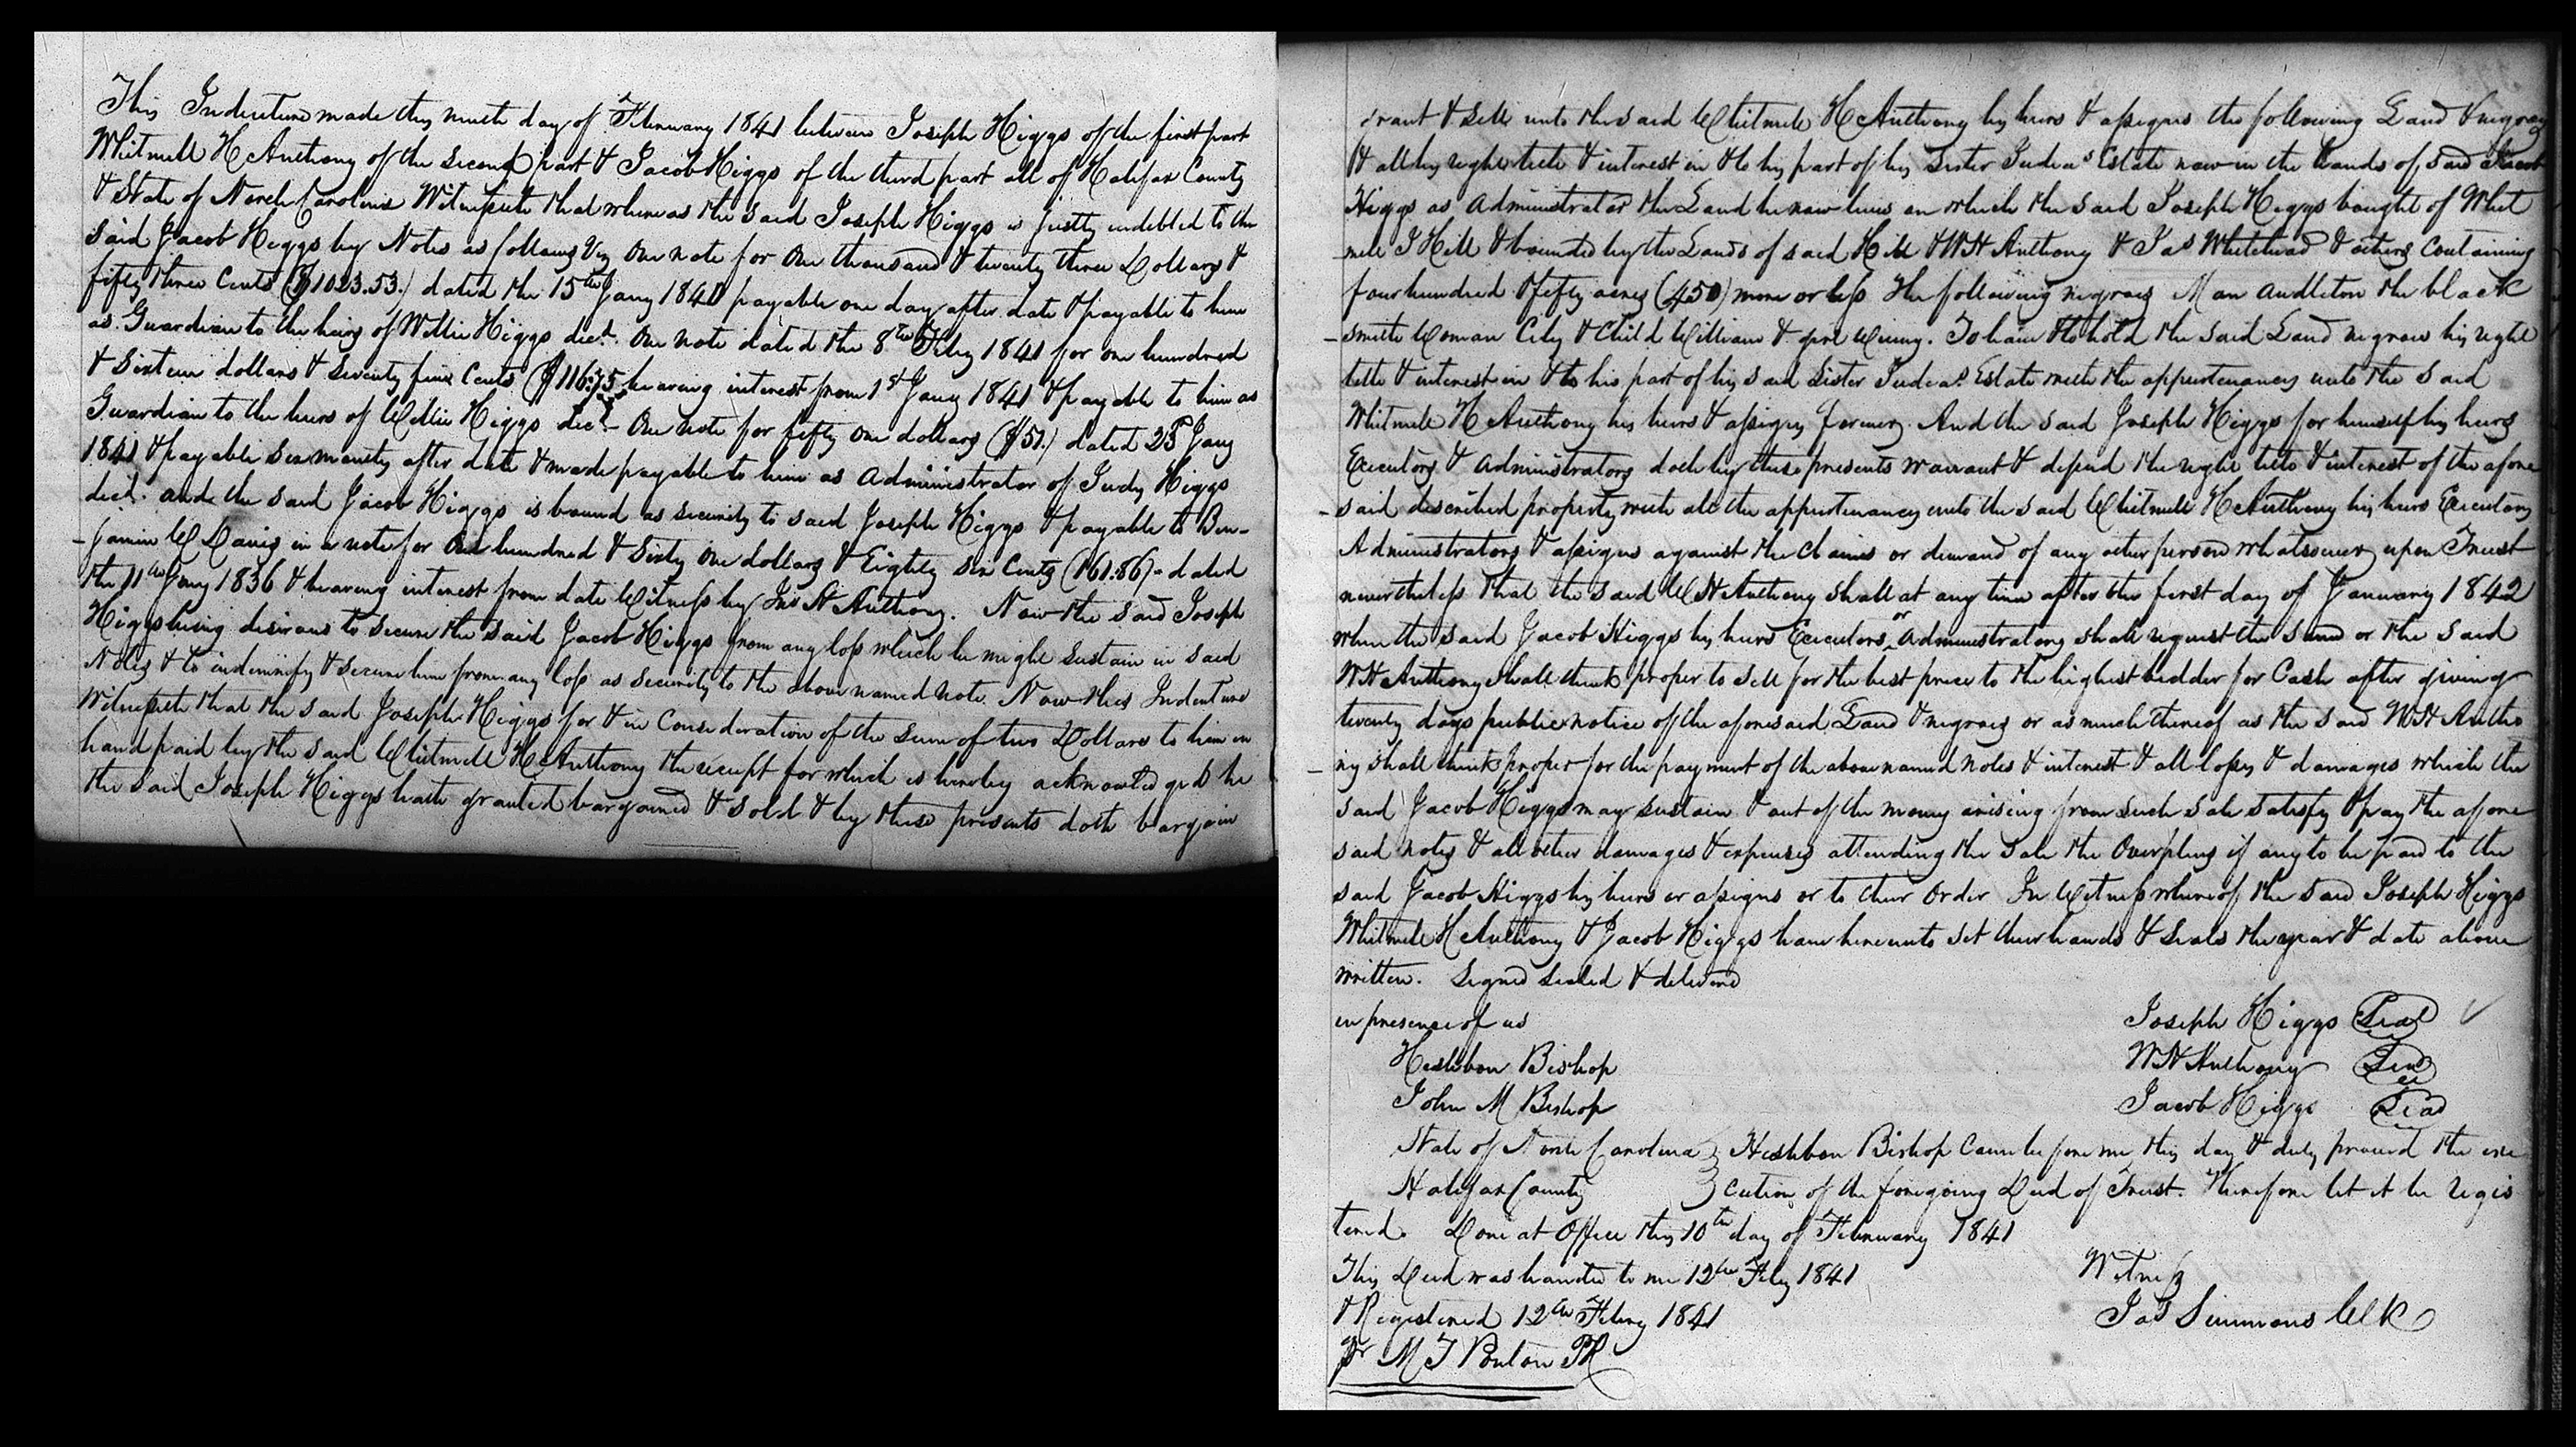 This Indenture made this ninth day of February 1841 between Joseph Higgs of the first part
Whitmell H Anthony of the Second part & Jacob Higgs of the third part all of Halifax County
& State of North Carolina Witnesseth that whereas the said Joseph Higgs is justly indebted to the
said Jacob Higgs by Notes as follows Viz One note for One thousand & twenty three Dollars &
fifty three Cents ($1023.53.) dated the 15th Jany 1841 payable one day after date & payable to him
as Guardian to the heirs of Willie Higgs decd. One note dated the 8th Feby 1841 for one hundred
& Sixteen dollars & Seventy five Cents ($116.75 bearing interest from 1st Jany 1841 & payable to him as
Guardian to the heirs of Willie Higgs decd - One note for fifty one dollars ($51.) dated 23d Jany
1841 & payable six months after date & made payable to him as Administrator of Judy Higgs
decd. and the said Jacob Higgs is bound as security to said Joseph Higgs & payable to Ben-
-jamin W Davis in a note for One hundred & Sixty one dollars & Eighty six Cents (161.86) - dated
the 11th Jany 1836 & bearing interest from date Witness by Jno H Anthony. Now the said Joseph
Higgs being desirous to Secure the said Jacob Higgs from any loss which he might Sustain in said
Notes & to indemnify & secure him from any loss as security to the above named note. Now this Indenture
Witnesseth that the said Joseph Higgs for & in Consideration of the Sum of two Dollars to him in
hand paid by the said Whitmell H Anthony the receipt for which is hereby acknowledged he
the said Joseph Higgs hath granted bargained & sold & by these presents doth bargain
grant & sell unto the said Whitmell H Anthony his heirs & assigns the following Land & negroes
& all his right title & interest in & to his part of his Sister Judeas Estate now in the hands of said Jacob
Higgs as Administrator the Land he now lives on which the said Joseph Higgs bought of Whit
-mell J Hill & bounded by the Lands of said Hill & WH Anthony & Jas Whitehead & others Containing
four hundred & fifty acres (450) more or less The following negroes Man Andleton the black
-smith Woman City & Child William & girl Winny. To have & to hold the said Land negroes his right
title & interest in & to his part of his said Sister Judeas Estate with the appurtenances unto the said
Whitmell H Anthony his heirs & assigns forever. And the said Joseph Higgs for himself his heirs
Executors & Administrators doth by these presents warrant & defend the right title & interest of the afore
-said described property with all the appurtenances unto the said Whitmell H Anthony his heirs Executors
Administrators & assigns against the claims or demand of any other person whatsoever upon Trust
nevertheless that the said WH Anthony shall at any time after the first day of January 1842
when the said Jacob Higgs his heirs Executors or Administrators shall request the same or the said
WH Anthony shall think proper to sell for the best price to the highest bidder for Cash after giving
twenty days public notice of the aforesaid Land & negroes or as much thereof as the said WH Antho
-ny shall think proper for the payment of the above named notes & interest & all losses & damages which the
said Jacob Higgs may sustain & out of the money arising from such sale satisfy & pay the afore
said notes & all other damages & expenses attending the sale the Overplus if any to be paid to the
said Jacob Higgs his heirs or assigns or to their Order In Witness whereof the said Joseph Higgs
Whitmell H Anthony & Jacob Higgs have hereunto set their hands & Seals the year & date above
written. Signed sealed & delivered
in presence of us
Joseph Higgs Seal
Heshbon Bishop
WH Anthony Seal
John M Bishop
Jacob Higgs Seal
State of North Carolina } Heshbon Bishop Came before me this day & duly proved the exe
Halifax County } cution of the foregoing Deed of Trust. Therefore let it be regis
tered. Done at Office this 10th day of February 1841
This Deed was handed to me 12th Feby 1841
Witness
& Registered 12th Feby 1841
Jas Simmons Clk
pr M T Ponton PR